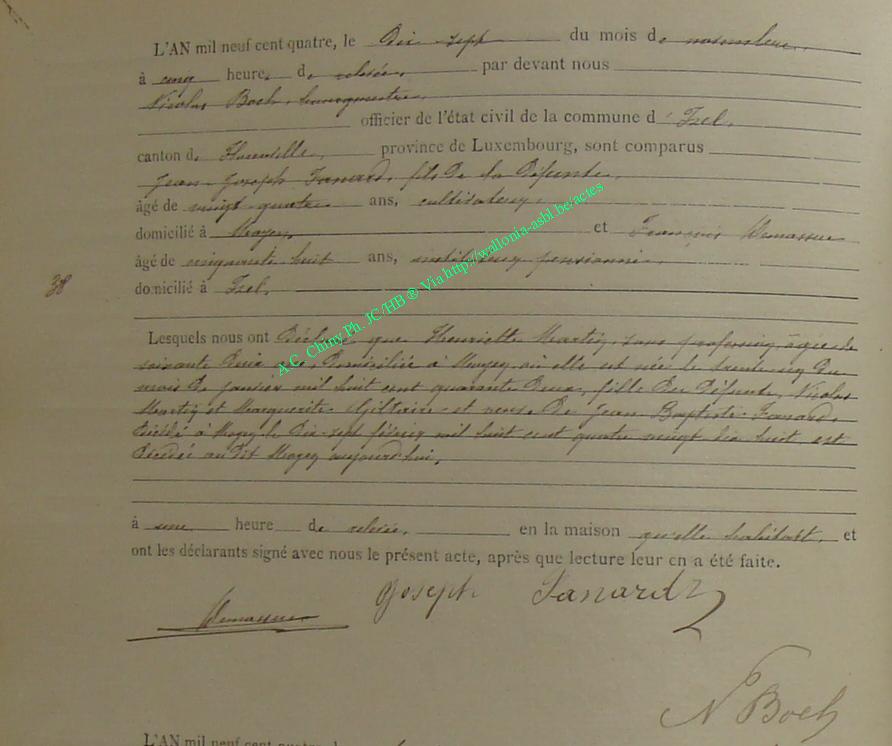 L'AN mil neuf cent quatre, le Dix-sept du mois de novembre
à cinq heures de relevée, par devant nous
Nicolas Boch, bourgmestre,
officier de l'état civil de la commune d'Izel,
canton de Florenville, province de Luxembourg, sont comparus
Jean-Joseph Fanard, fils de la défunte,
âgé de vingt quatre ans, cultivateur,
domicilié à Moyen, et François
âgé de cinquante huit ans, instituteur pensionné,
domicilié à Izel,
38
Lesquels nous ont déclaré que Henriette Martiny, sans profession, âgée de
soixante deux ans, domiciliée à Moyen, où elle est née le du
mois de janvier mil huit cent quarante deux, fille des défunts, Nicolas
et Marguerite Giltaire et veuve de Jean Baptiste Fanard,
décédé à Moyen le dix-sept février mil huit cent quatre vingt dix huit, est
décédée audit Moyen aujourd'hui,
à une heure de relevée, en la maison qu'elle habitait, et
ont les déclarants signé avec nous le présent acte, après que lecture leur en a été faite.
Joseph Fanard
N Boch
L'AN mil neuf cent quatre
A.C. Chiny Ph. JC/HB ® Via http://wallonia-asbl.be/actes